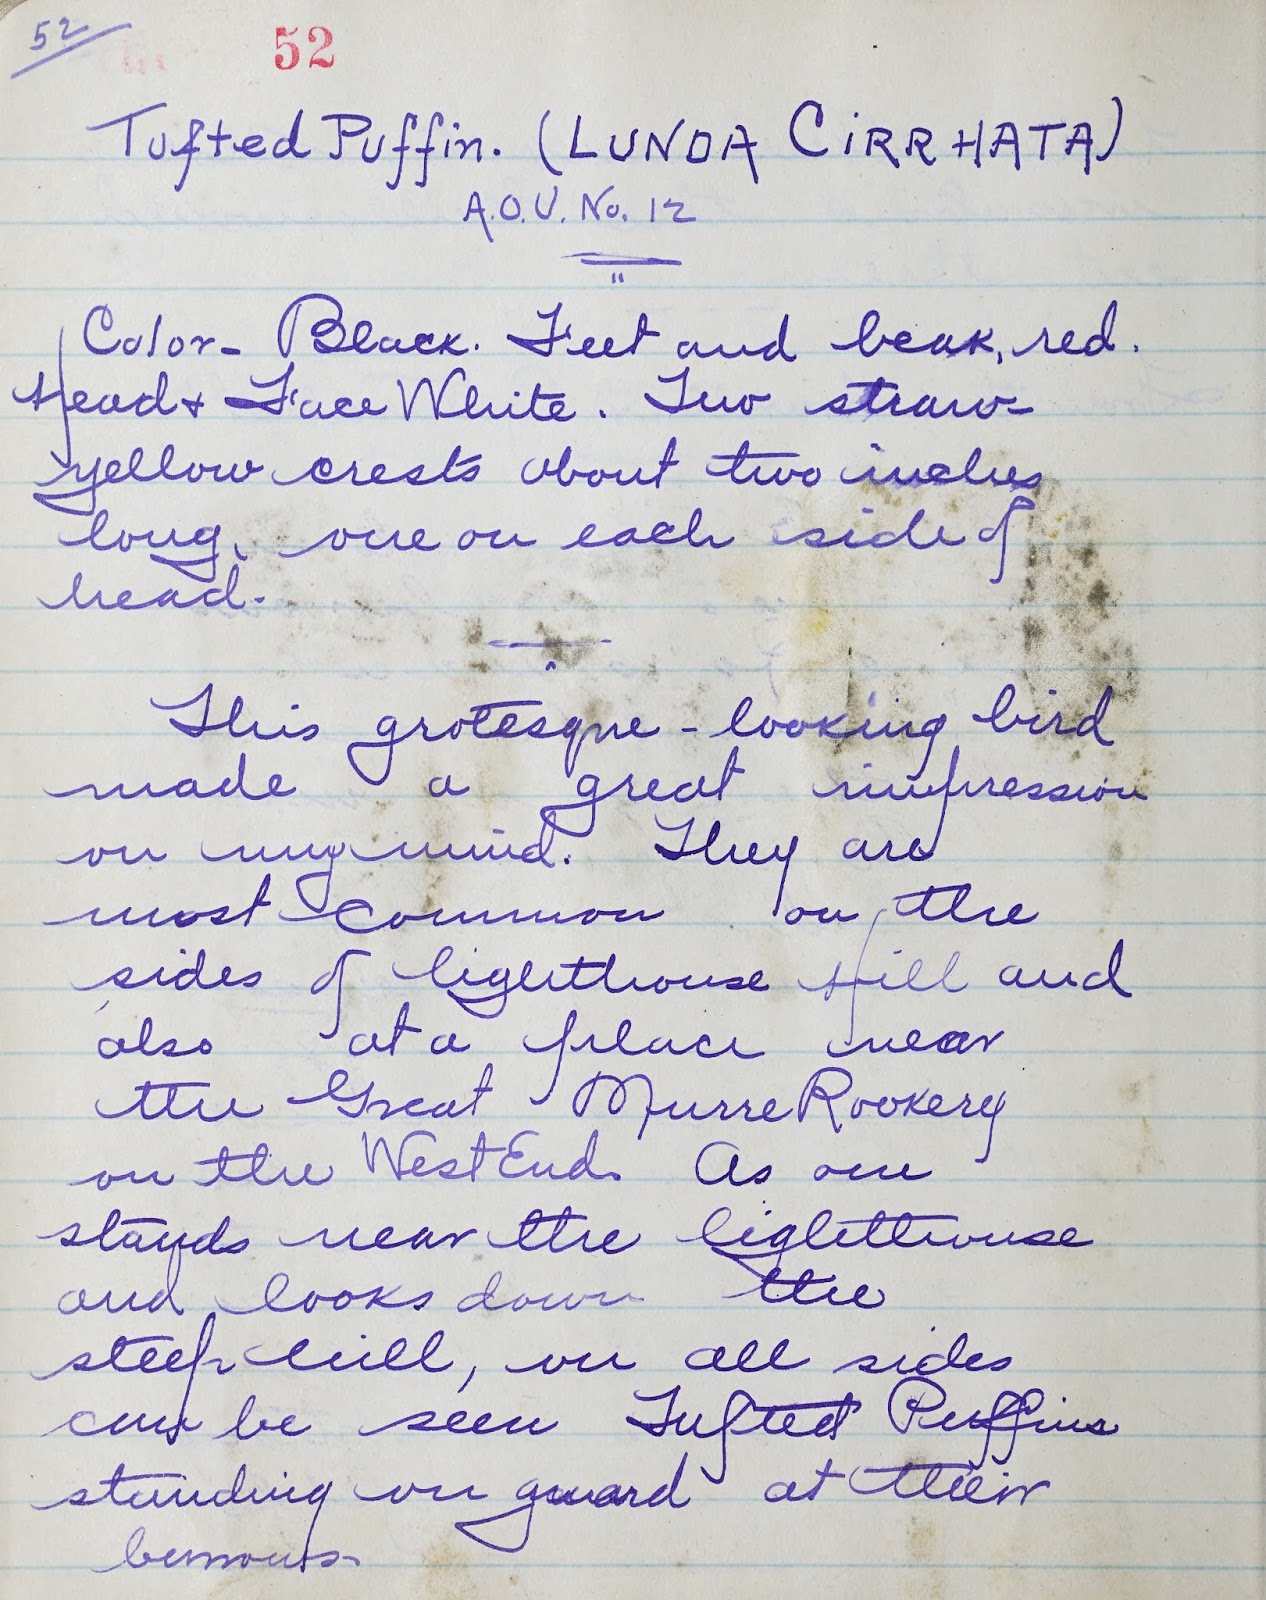 52 52
Tufted Puffin. (LUNDA CIRRHATA)
A.O.U. No. 12
Color- Black. Feet and beak, red.
Head + Face White. Two straw-
yellow crests about two inches
long, one on each side of
head.
This grotesque-looking bird
made a great impression
on my mind. They are
most common on the
sides of lighthouse Hill and
also at a place near
the Great Murre Rookery
on the West End. As one
stands near the lighthouse
and looks down the
steep hill, on all sides
can be seen Tufted Puffins
standing on guard at their